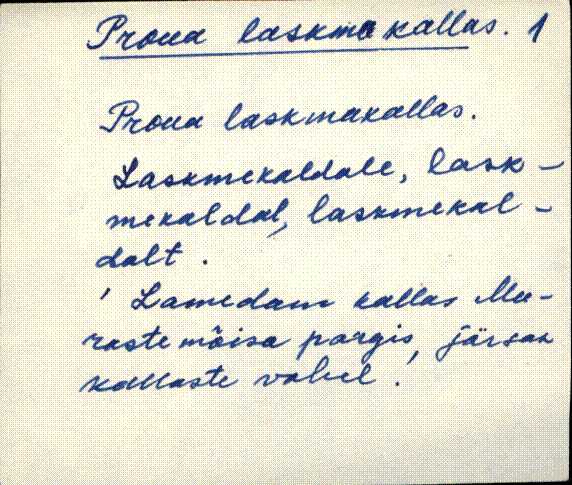 Proua laskmakallas. 1
Proua laskmakallas.
Laskmekaldale, lask-
mekaldal, laskmekal-
dalt.
' Lamedam kallas Mu-
raste mõisa pargis, järsak
kallaste vahel.'